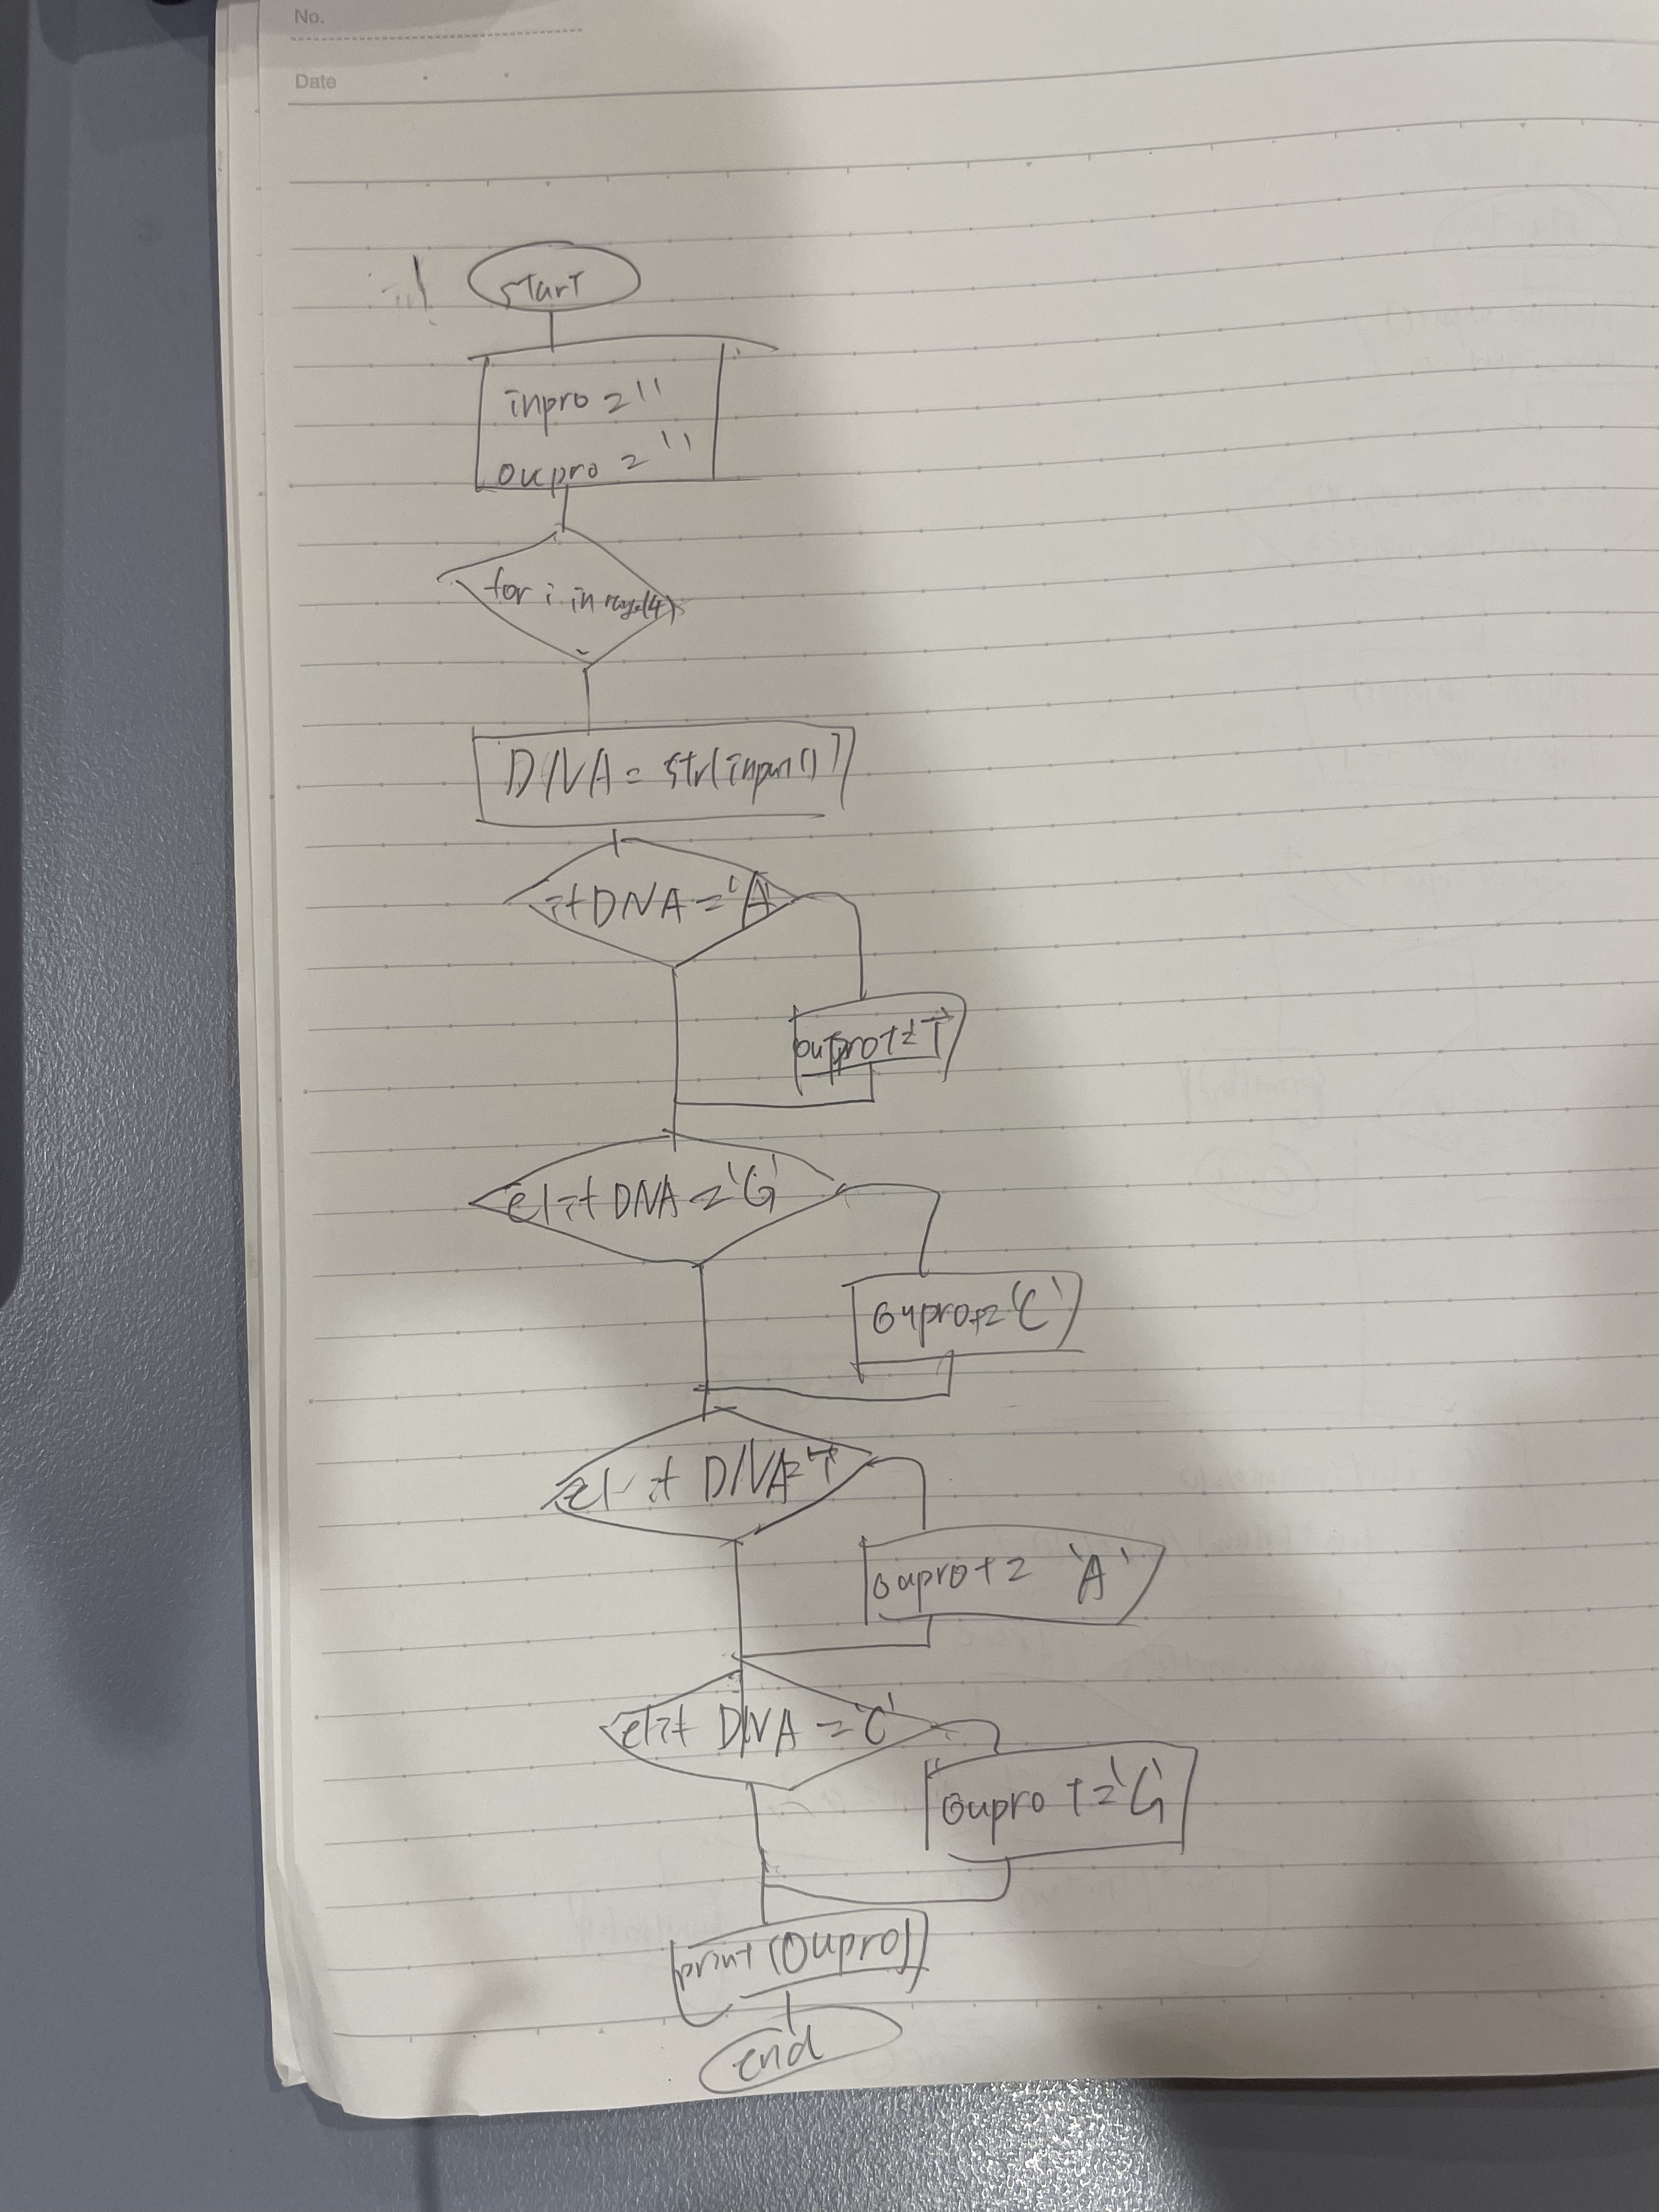 No.
Date
start
inpro = ''
oupro = ''
for i in range(4):
DNA = str(input())
if DNA = 'A'
oupro += 'T'
elif DNA = 'G'
oupro += 'C'
elif DNA = 'T'
oupro += 'A'
elif DNA = 'C'
oupro += 'G'
print (oupro)
end